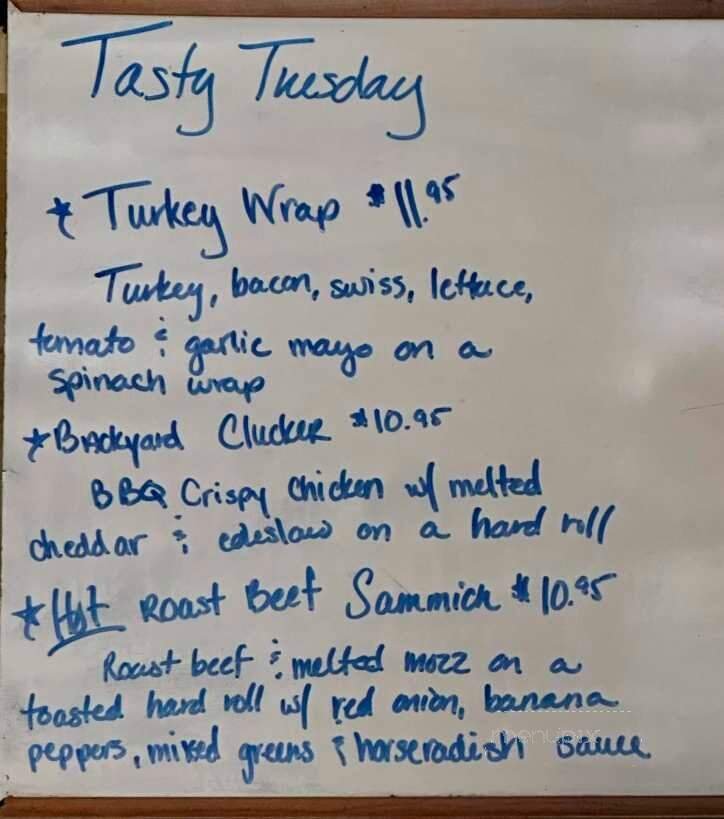 Tasty Tuesday
* Turkey Wrap $11.95
Turkey, bacon, swiss, lettuce,
tomato & garlic mayo on a
spinach wrap
* Backyard Clucker $10.95
BBQ Crispy Chicken w/ melted
cheddar & coleslaw on a hard roll
* Hot Roast Beef Sammich $10.95
Roast beef & melted mozz on a
toasted hard roll w/ red onion, banana
peppers, mixed greens & horseradish sauce
menupix